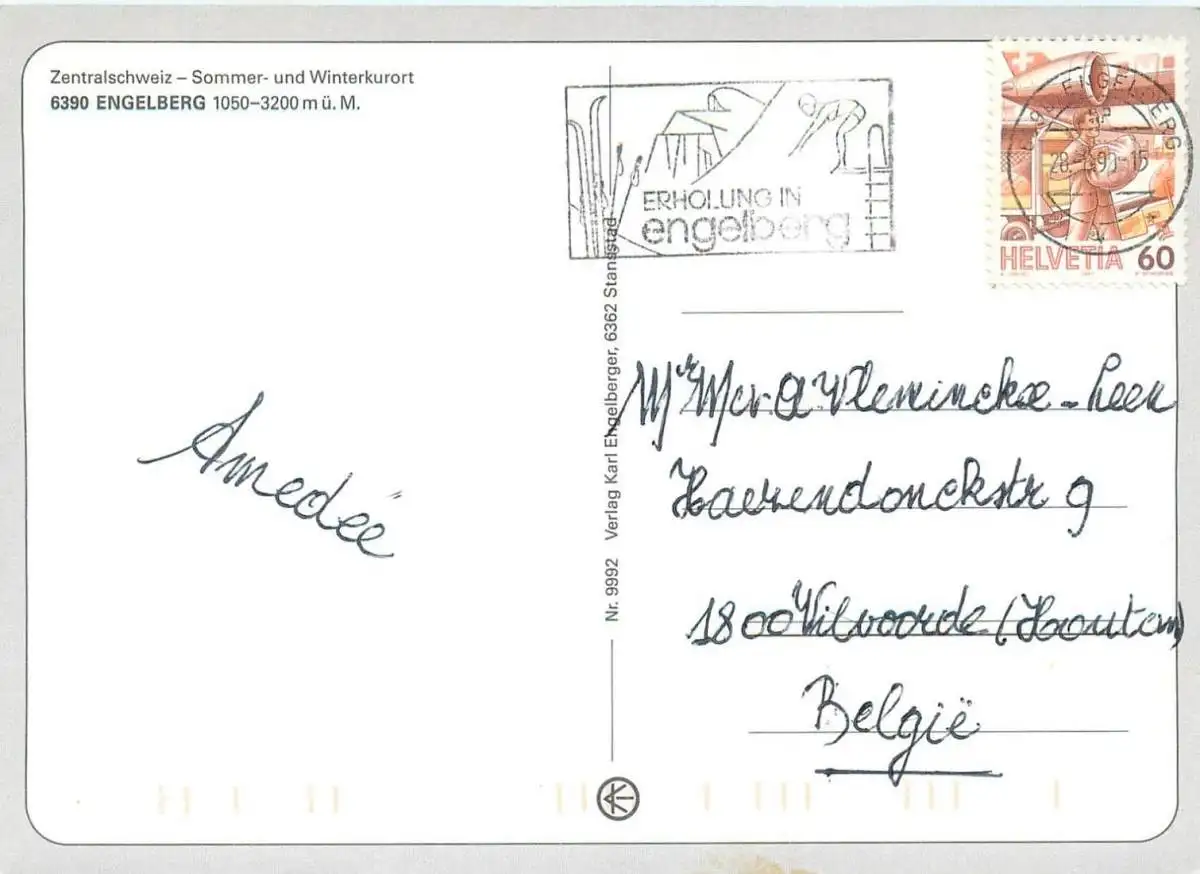 Zentralschweiz – Sommer- und Winterkurort
6390 ENGELBERG 1050–3200 m ü. M.
ERHOLUNG IN
engelberg
ENGELBERG
HELVETIA 60
Nr. 9992 Verlag Karl Engelberger, 6362 Stansstad
Amedée
Mr Mevr. A Vleminckx - Leen
Haerendonckstr 9
1800 Vilvoorde (Houtem)
België